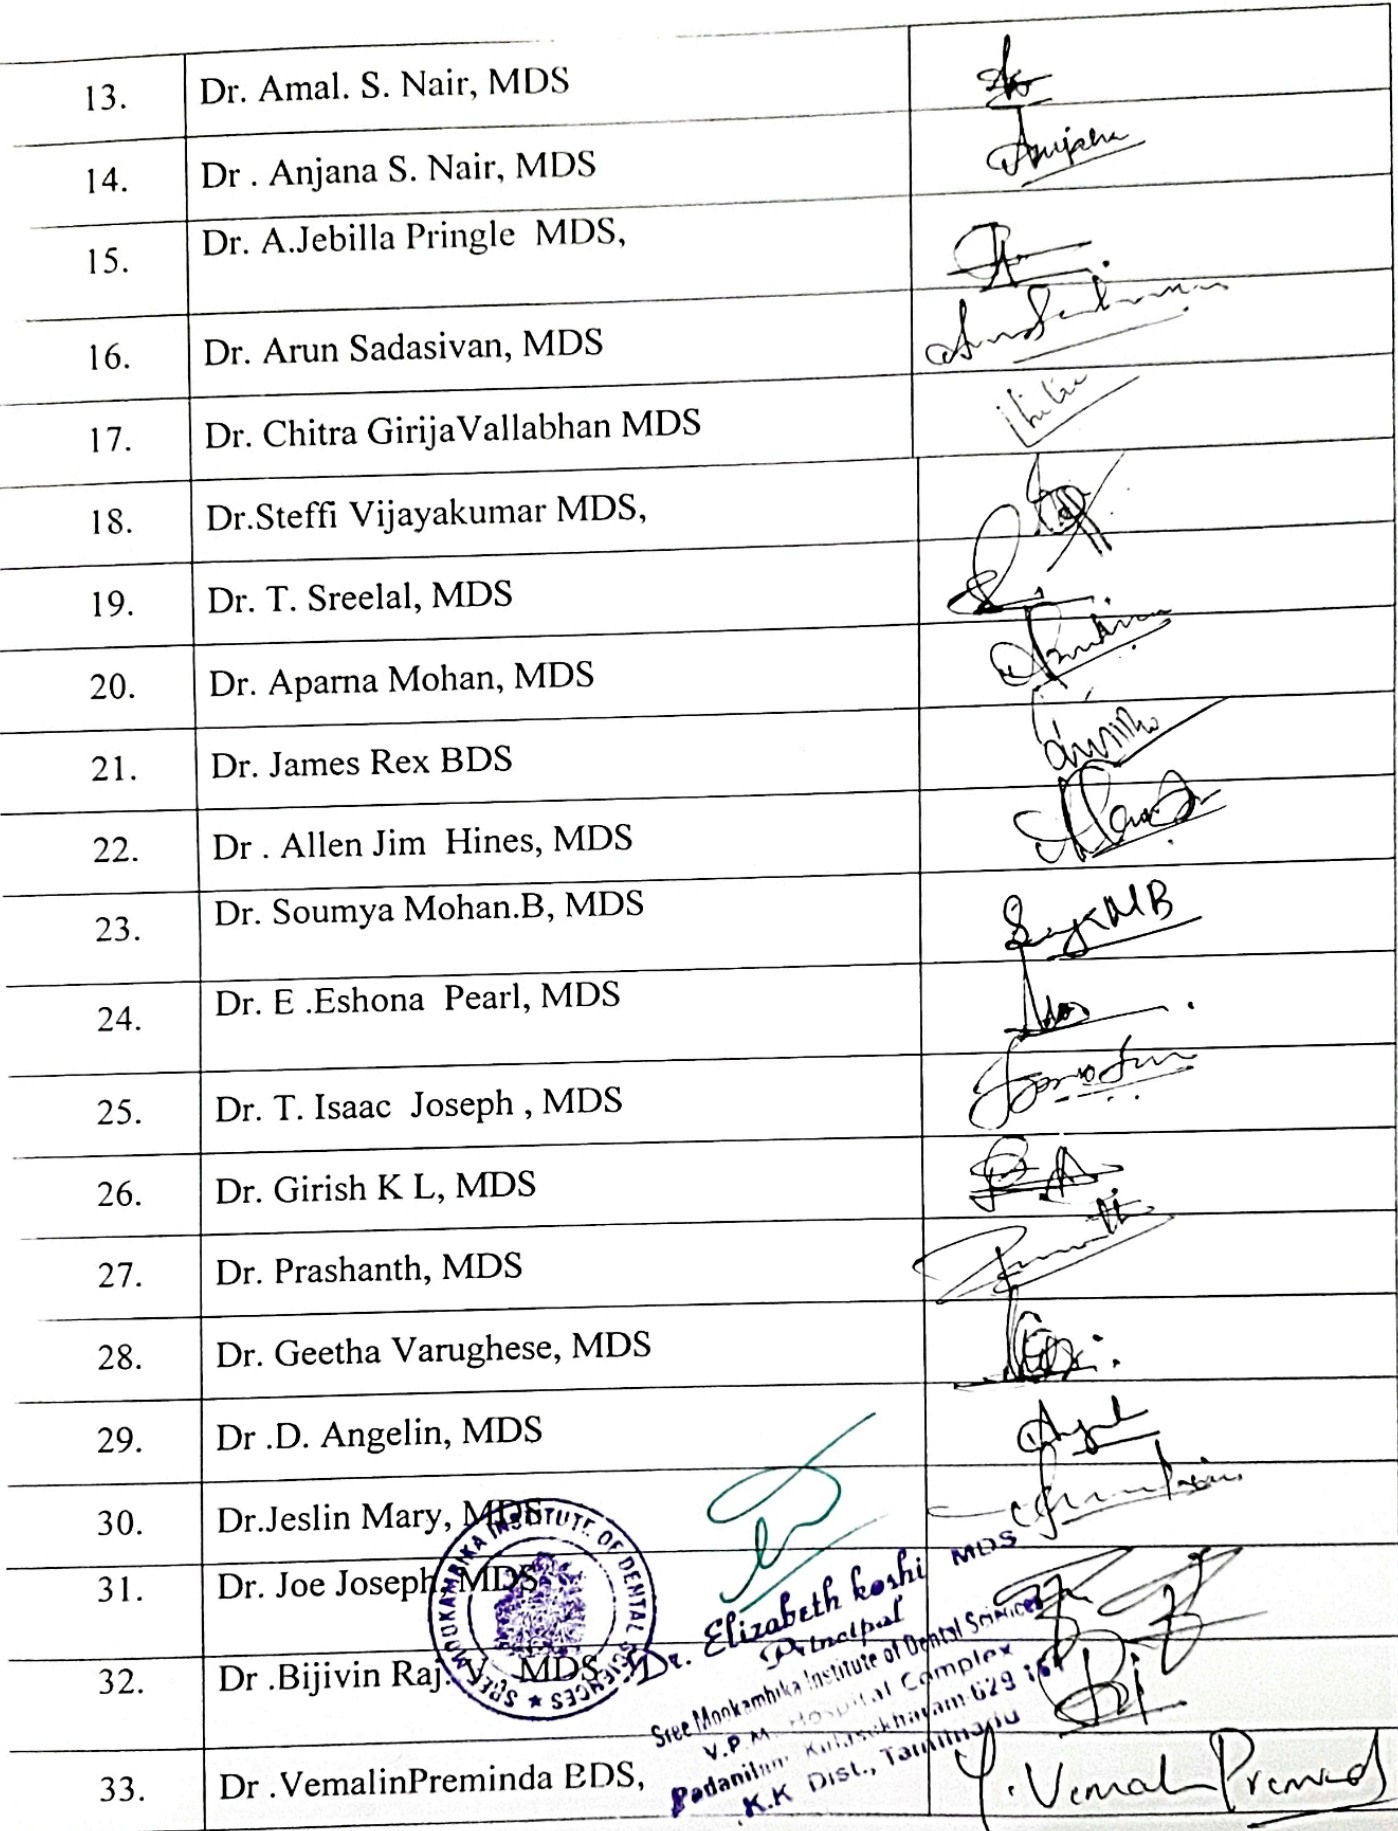 13. Dr. Amal. S. Nair, MDS
14. Dr . Anjana S. Nair, MDS
15. Dr. A.Jebilla Pringle MDS,
16. Dr. Arun Sadasivan, MDS
17. Dr. Chitra GirijaVallabhan MDS
18. Dr.Steffi Vijayakumar MDS,
19. Dr. T. Sreelal, MDS
20. Dr. Aparna Mohan, MDS
21. Dr. James Rex BDS
22. Dr . Allen Jim Hines, MDS
23. Dr. Soumya Mohan.B, MDS
24. Dr. E .Eshona Pearl, MDS
25. Dr. T. Isaac Joseph , MDS
26. Dr. Girish K L, MDS
27. Dr. Prashanth, MDS
28. Dr. Geetha Varughese, MDS
29. Dr .D. Angelin, MDS
30. Dr.Jeslin Mary, MDS
31. Dr. Joe Joseph, MDS
32. Dr .Bijivin Raj. V, MDS
33. Dr .VemalinPreminda BDS,
SREE MOOKAMBIKA INSTITUTE OF DENTAL SCIENCES
Dr. Elizabeth koshi MDS
Principal
Sree Mookambika Institute of Dental Sciences
V.P.M. Hospital Complex
Padanilam Kulasekharam-629 161
K.K Dist., Tamilnadu